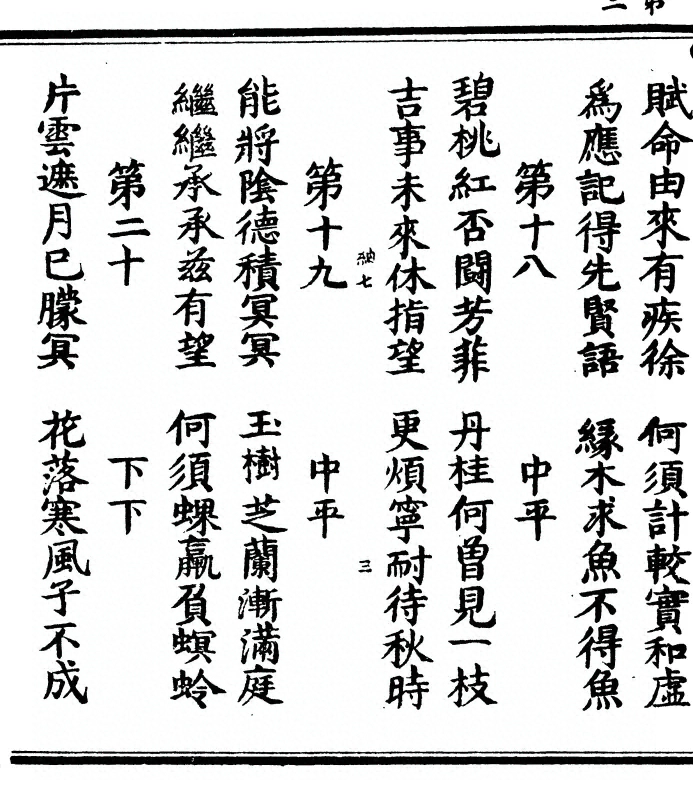 賦命由來有疾徐　何須計較實和虛
爲應記得先賢語　緣木求魚不得魚
第十八　中平
碧桃紅否鬭芳菲　丹桂何曾見一枝
吉事未來休指望　更煩寧耐待秋時
三
第十九　中平
能將陰德積冥冥　玉樹芝蘭漸滿庭
繼繼承承茲有望　何須蜾蠃負螟蛉
第二十　下下
片雲遮月已朦冥　花落寒風子不成